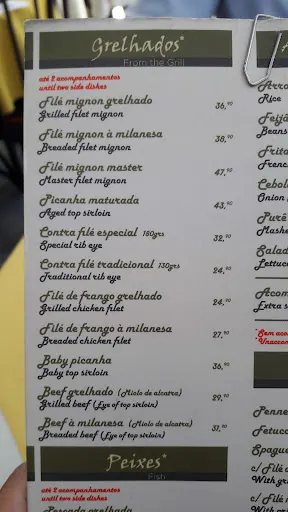 Grelhados*
From the Grill
até 2 acompanhamentos
until two side dishes
Filé mignon grelhado 36,90
Grilled filet mignon
Filé mignon à milanesa 38,90
Breaded filet mignon
Filé mignon master 47,90
Master filet mignon
Picanha maturada 43,90
Aged top sirloin
Contra filé especial 180grs 32,90
Special rib eye
Contra filé tradicional 130grs 24,90
Traditional rib eye
Filé de frango grelhado 24,90
Grilled chicken filet
Filé de frango à milanesa 27,90
Breaded chicken filet
Baby picanha 36,90
Baby top sirloin
Beef grelhado (Miolo de alcatra) 29,90
Grilled beef (Eye of top sirloin)
Beef à milanesa (Miolo de alcatra) 31,90
Breaded beef (Eye of top sirloin)
Peixes*
Fish
até 2 acompanhamentos
until two side dishes
Pescada grelhada
A
Arro
Rice
Feijã
Beans
Frita
Frenc
Cebol
Onion
Mashe
Salad
Lettuc
Acom
Extra s
*Sem aco
*Unaccom
Penne
Fetuc
Spagu
c/ Filé
With gri
c/ Filé
With gri